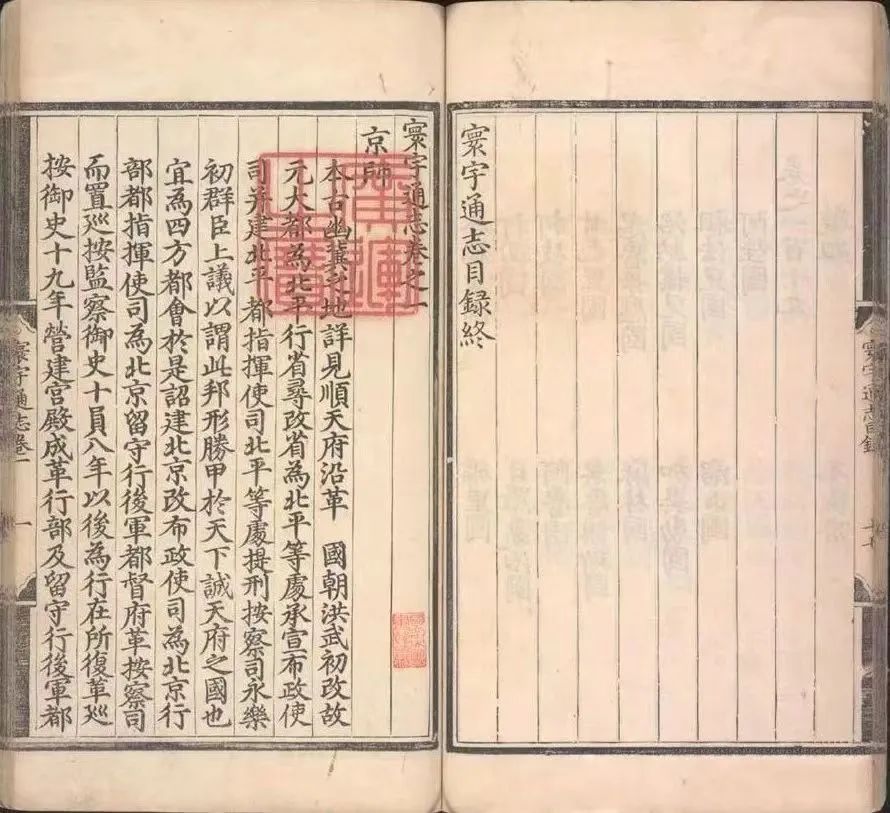 寰宇通志目錄終
寰宇通志目錄
寰宇通志卷之一
京師
本古幽冀之地詳見順天府沿革　國朝洪武初改故
元大都為北平行省尋改省為北平等處承宣布政使
司并建北平都指揮使司北平等處提刑按察司永樂
初群臣上議以謂此邦形勝甲於天下誠天府之國也
宜為四方都會於是詔建北京改布政使司為北京行
部都指揮使司為北京留守行後軍都督府革按察司
而置巡按監察御史十員八年以後為行在所復革巡
按御史十九年營建宮殿成革行部及留守行後軍都
寰宇通志卷一
一